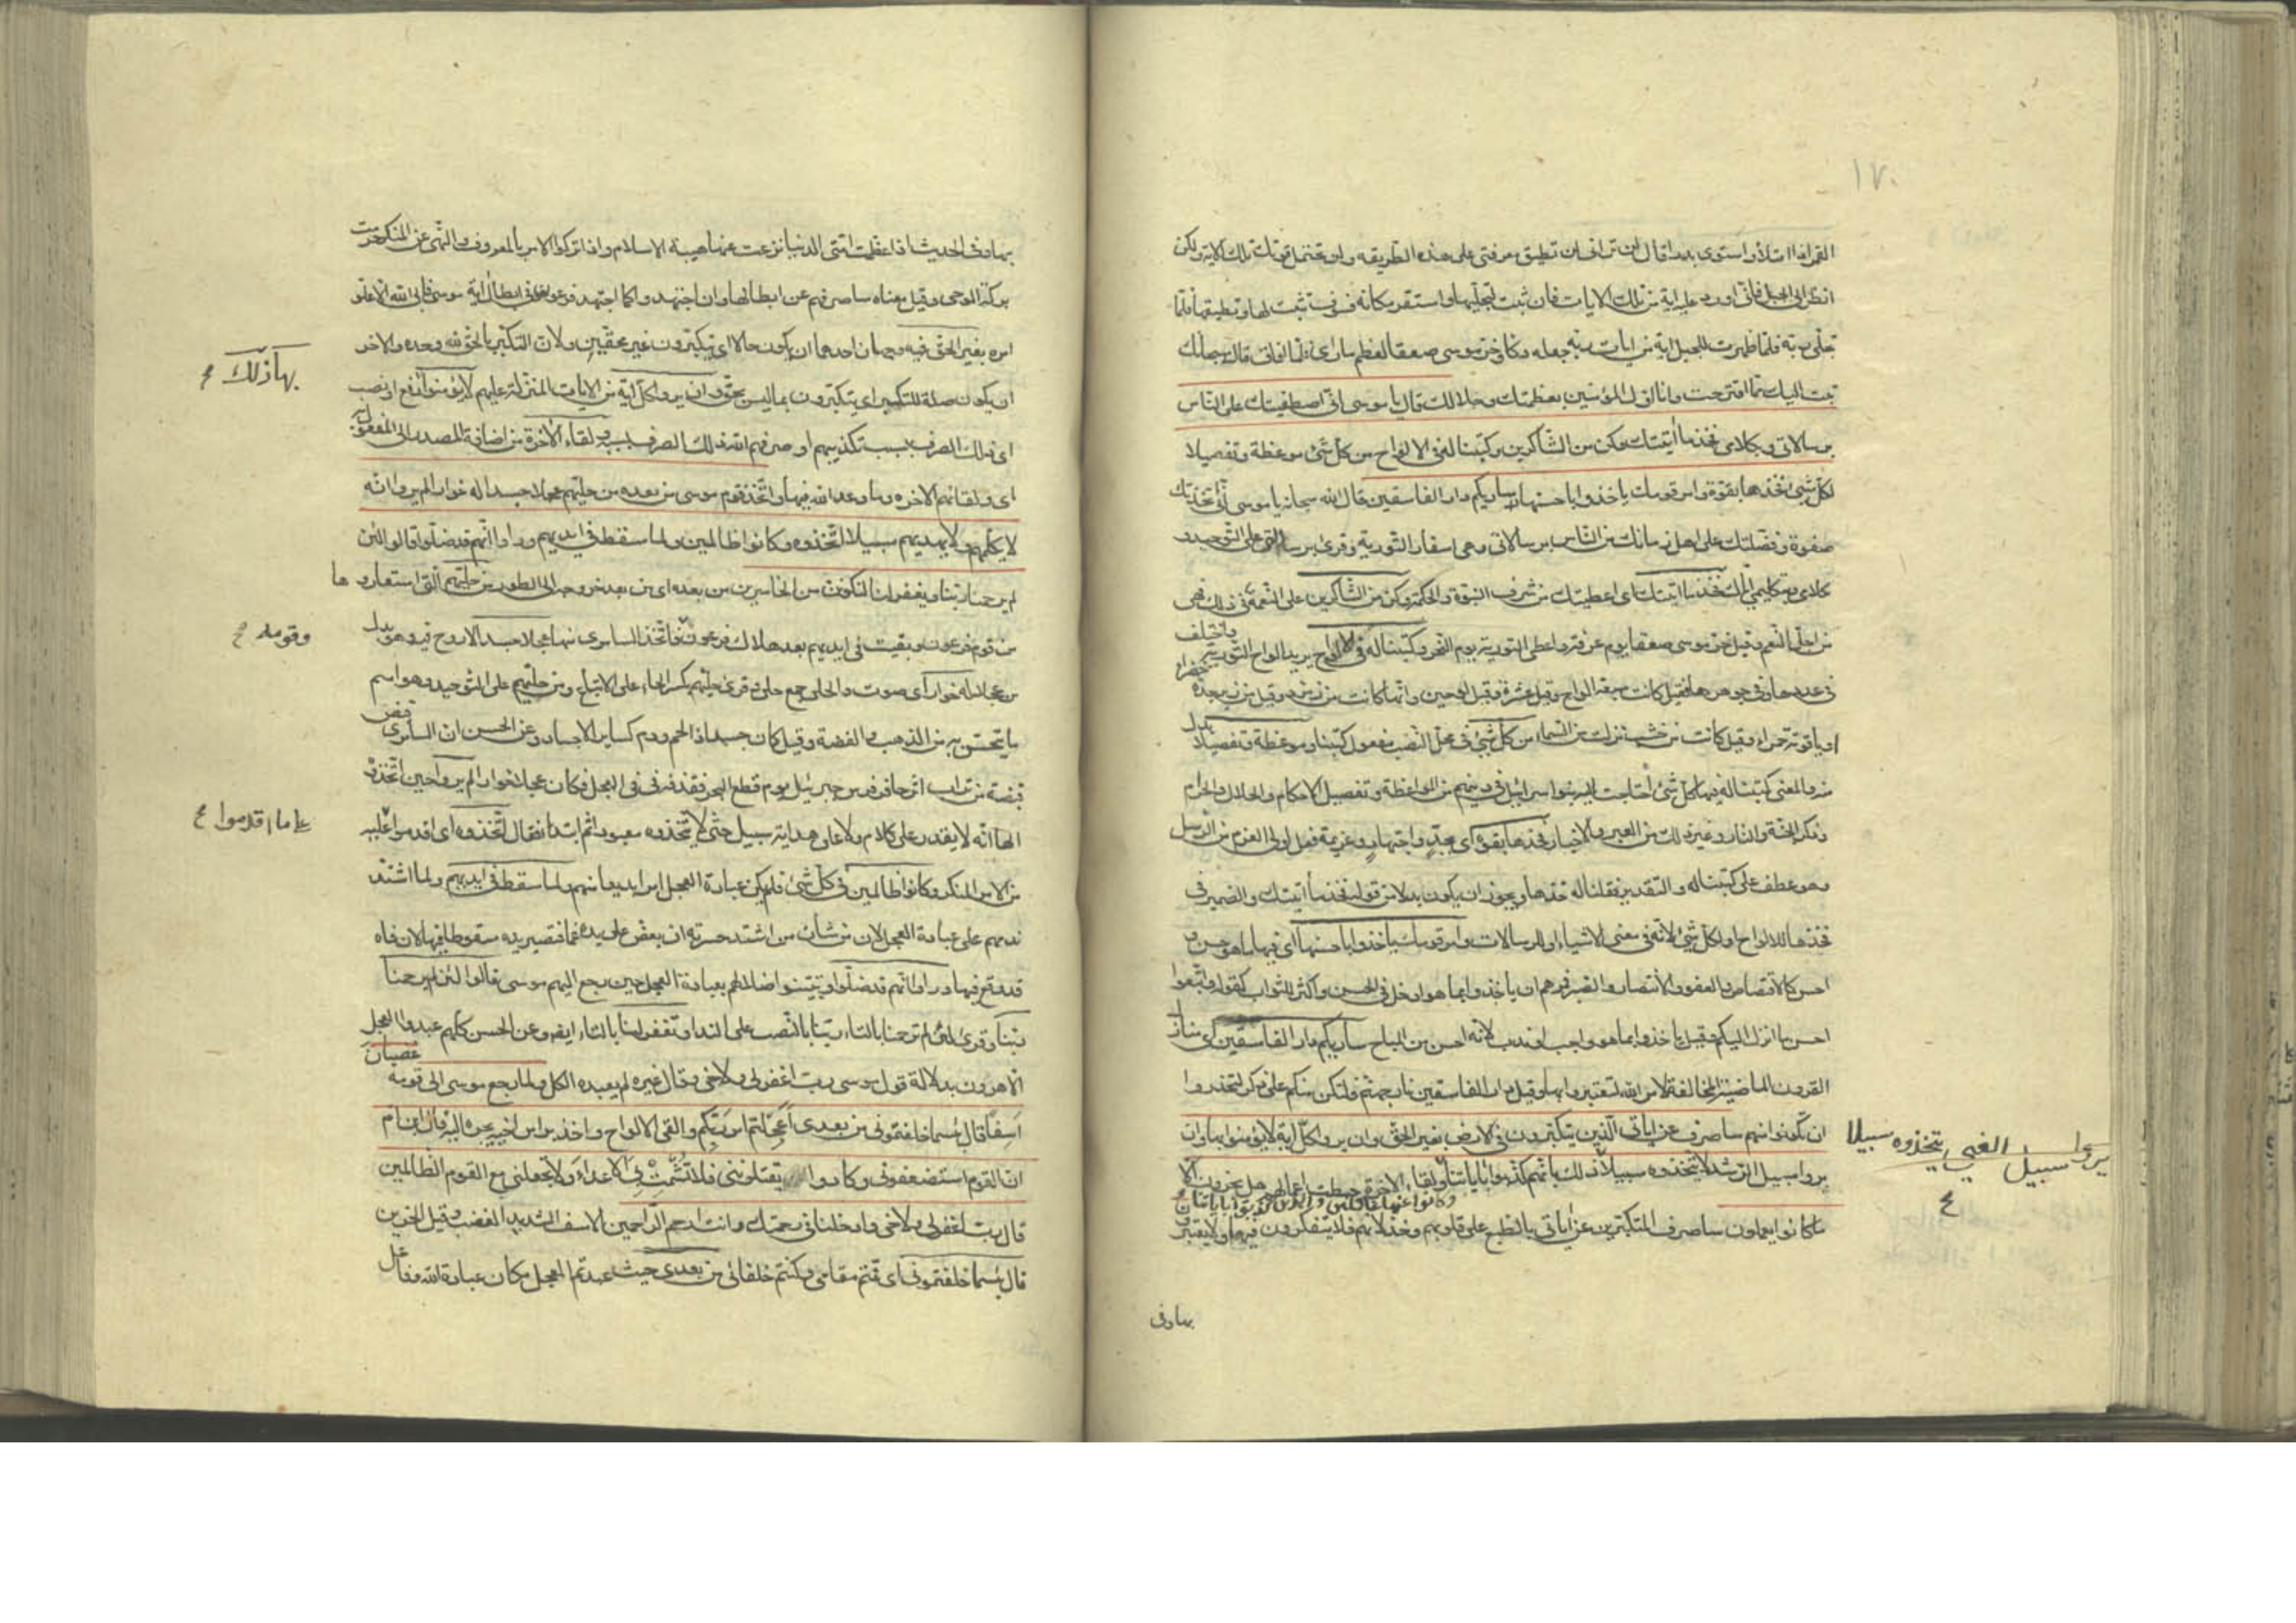 ١٧٠
القمر اذا امتلأ واستوى بدرا قال لن ترانى لن تطيق معرفتى على هذه الطريقه ولن تحتمل قوتك تلك الاية ولكن
انظر الى الجبل فانى اورد عليه اية من تلك الايات فان ثبت لتجليها واستقر مكانه فسوف تثبت لها وتطيقها فلما
تجلى ربه فلما ظهرت للجبل اية من ايات ربه جعله دكا وخر موسى صعقا لعظم ما راى فلما افاق قال سبحانك
تبت اليك مما اقترحت وانا اول المؤمنين بعظمتك وجلالك قال يا موسى انى اصطفيتك على الناس
برسالاتى وبكلامى فخذ ما آتيتك وكن من الشاكرين وكتبنا له فى الالواح من كل شئ موعظة وتفصيلا
لكل شئ فخذها بقوة وامر قومك ياخذوا باحسنها ساريكم دار الفاسقين قال الله سبحانه يا موسى انى اتخذتك
صفوة وفضلتك على اهل زمانك من الناس برسالاتى وهى اسفار التورية وقرئ برسالتى على التوحيد و
بكلامى وبتكليمى اياك فخذ ما اتيتك اى اعطيتك من شرف النبوة والحكمة وكن من الشاكرين على النعمة فى ذلك فهى
من اجل النعم وقيل خر موسى صعقا يوم عرفة واعطى التورية يوم النحر وكتبنا له فى الالواح يريد الواح التورية واختلف
فى عددها وفى جوهرها فقيل كانت سبعة الواح وقيل عشرة وقيل لوحين وانها كانت من زمرد وقيل من زبرجدة خضراء
او ياقوتة حمراء وقيل كانت من خشب نزلت من السماء من كل شئ فى محل النصب مفعول كتبنا وموعظة وتفصيلا بدل
منه والمعنى كتبنا له فيها كل شئ احتاجت اليه بنوا اسرائيل فى دينهم من المواعظة وتفصيل الاحكام والحلال والحرام
وذكر الجنة والنار وغير ذلك من العبر والاخبار فخذها بقوة اى بجد واجتهاد وعزيمة فعل اولى العزم من الرسل
وهو عطف على كتبنا له والتقدير فقلنا له خذها ويجوز ان يكون بدلا من قوله فخذ ما آتيتك والضمير فى
فخذها للالواح او لكل شئ لانه فى معنى الاشياء او للرسالات وامر قومك ياخذوا باحسنها اى فيها ما هو حسن و
احسن كالاقتصاص والعفو والانتصار والصبر فمرهم ان ياخذوا بما هو ادخل فى الحسن واكثر للثواب كقوله واتبعوا
احسن ما انزل اليكم وقيل ياخذوا بما هو واجب او ندب لانه احسن من المباح ساريكم دار الفاسقين اى منازل
القرون الماضية المخالفة لامر الله لتعتبروا بها وقيل دار الفاسقين نار جهنم فلتكن منكم على ذكر لتحذروا
ان تكونوا منهم ساصرف عن اياتى الذين يتكبرون فى الارض بغير الحق وان يروا كل اية لا يؤمنوا بها وان
يروا سبيل الرشد لا يتخذوه سبيلا ذلك بانهم كذبوا باياتنا ولقاء الاخرة حبطت اعمالهم هل يجزون الا
وكانوا عنها غافلين والذين كذبوا باياتنا
ما كانوا يعملون ساصرف المتكبرين عن اياتى بالطبع على قلوبهم وخذلانهم فلا يتفكرون فيها ولا يعتبرون
يروا سبيل الغى يتخذوه سبيلا
بها وفى
بها وفى الحديث اذا عظمت امتى الدنيا نزعت عنها هيبة الاسلام واذا تركوا الامر بالمعروف والنهى عن المنكر حرمت
بركة الوحى وقيل معناه ساصرفهم عن ابطالها وان اجتهدوا كما اجتهد فرعون فى ابطال اية موسى فابى الله الا علو
امره بغير الحق فيه وجهان احدهما ان يكون حالا اى يتكبرون غير محقين ولان التكبر بالحق لله وحده والاخر
ان يكون صلة للتكبر اى يتكبرون بما ليس بحق وان يروا كل اية من الايات المنزلة عليهم لا يؤمنوا رفع او نصب
بها ذلك
اى ذلك الصرف بسبب تكذيبهم او صرفهم الله ذلك الصرف بسببه ولقاء الاخرة من اضافة المصدر الى المفعول به
اى ولقائهم الاخره وما وعد الله فيها واتخذ قوم موسى من بعده من حليهم عجلا جسدا له خوار الم يروا انه
لا يكلمهم ولا يهديهم سبيلا اتخذوه وكانوا ظالمين ولما سقط فى ايديهم وراوا انهم قد ضلوا قالوا لئن
لم يرحمنا ربنا ويغفر لنا لنكونن من الخاسرين من بعده اى من بعد خروجه الى الطور من حليهم التى استعاروها
من قوم فرعون وبقيت فى ايديهم بعد هلاك فرعون فاتخذ السامرى منها عجلا جسدا لا روح فيه وهو بدل
وقومه
من عجلا له خوار اى صوت والحلى جمع حلى وقرئ حليهم بكسر الحاء على الاتباع ومن حليهم على التوحيد وهو اسم
ما يتحسن به من الذهب والفضة وقيل كان جسدا ذا لحم ودم كساير الاجساد وعن الحسن ان السامرى قبض
قبضة من تراب اثر حافر فرس جبرئيل يوم قطع البحر فقذفه فى فى العجل فكان عجلا له خوار الم يروا حين اتخذوه
الها انه لا يقدر على كلام ولا على هداية سبيل حتى لا يتخذوه معبودا ثم ابتدا فقال اتخذوه اى اقدموا عليه
على ما اقدموا
من الامر المنكر وكانوا ظالمين فى كل شئ فلم يكن عبادة العجل امرا بديعا منهم ولما سقط فى ايديهم ولما اشتد
ندمهم على عبادة العجل لان من شان من اشتد حسرته ان يعض على يده غما فتصير يده سقوطا فيها لان فاه
قد وقع فيها وراوا انهم قد ضلوا وتبينوا ضلالهم بعبادة العجل حين رجع اليهم موسى قالوا لئن لم يرحمنا
ربنا وقرئ لئن لم ترحمنا بالتاء ربنا بالنصب على الندا وتغفر لنا بالتاء ايضا وعن الحسن كلهم عبدوا العجل
الا هرون بدلالة قول موسى رب اغفر لى ولاخى وقال غيره لم يعبده الكل ولما رجع موسى الى قومه غضبان
اسفا قال بئسما خلفتمونى من بعدى اعجلتم امر ربكم والقى الالواح واخذ براس اخيه يجره اليه قال ابن ام
ان القوم استضعفونى وكادوا يقتلوننى فلا تشمت بى الاعداء ولا تجعلنى مع القوم الظالمين
قال رب اغفر لى ولاخى وادخلنا فى رحمتك وانت ارحم الراحمين الاسف الشديد الغضب وقيل الحزين
قال بئسما خلفتمونى اى قمتم مقامى وكنتم خلفائى من بعدى حيث عبدتم العجل مكان عبادة الله